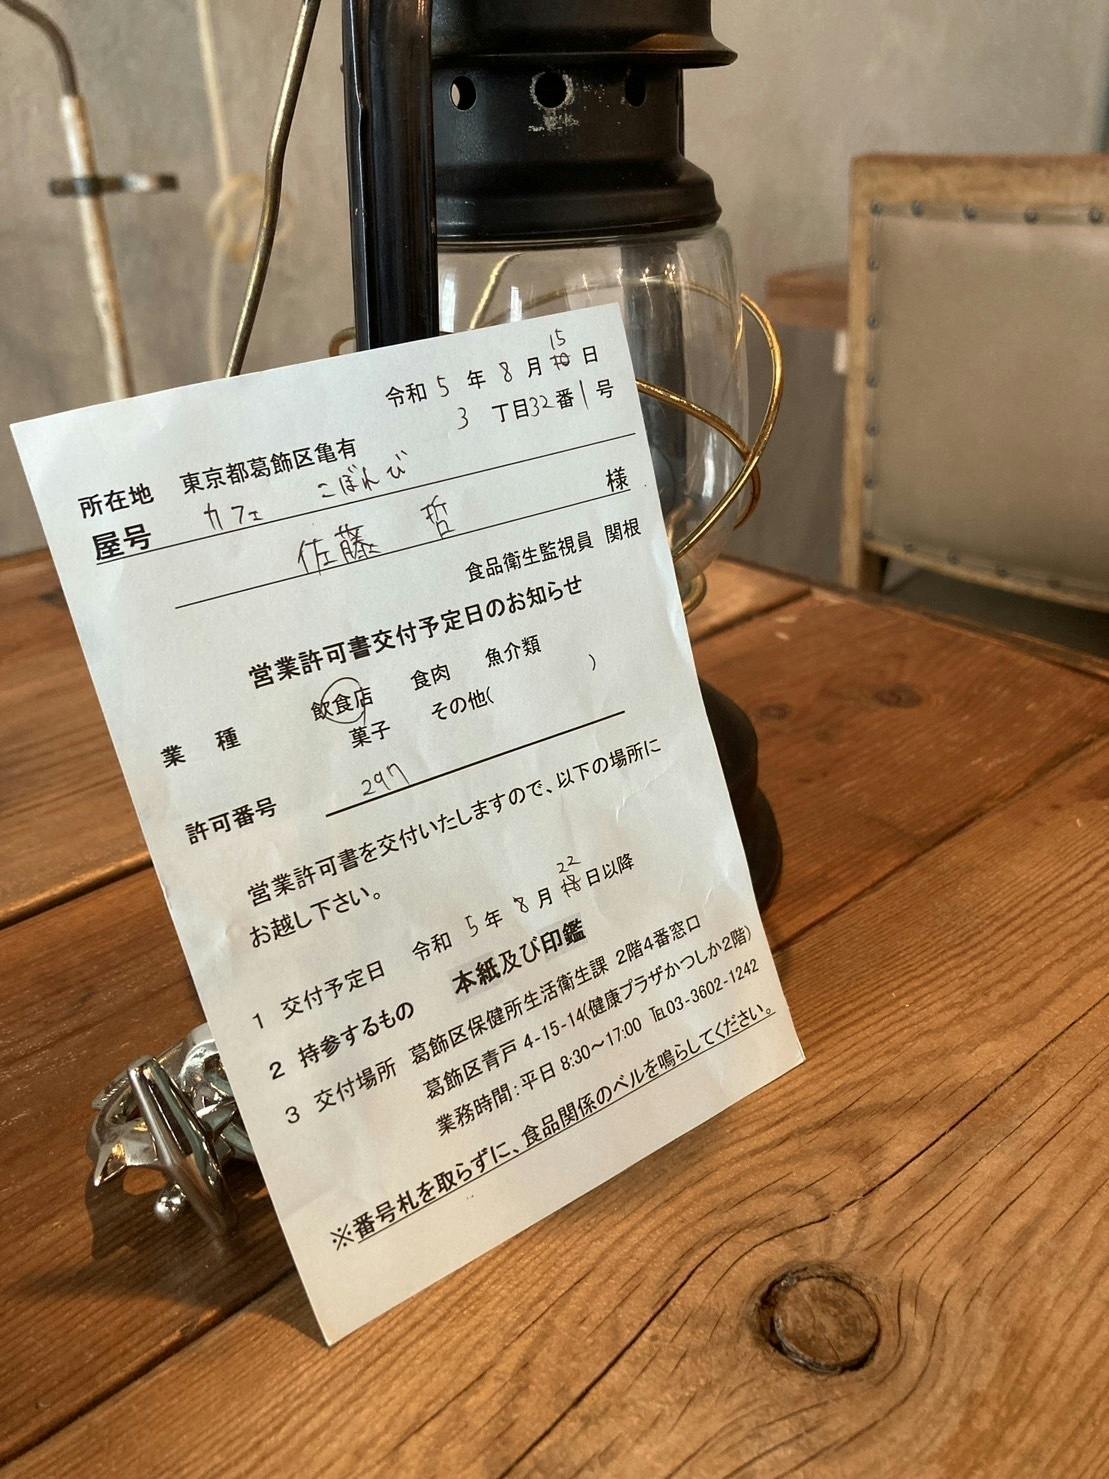 令和 5 年 8 月 15 日
所在地 東京都葛飾区亀有 3 丁目32番1号
屋号 カフェ こぼれび
佐藤 哲 様
食品衛生監視員 関根
営業許可書交付予定日のお知らせ
業種 飲食店 食肉 魚介類
菓子 その他( )
許可番号 297
営業許可書を交付いたしますので、以下の場所に
お越し下さい。
1 交付予定日 令和 5 年 8 月 22 日以降
2 持参するもの 本紙及び印鑑
3 交付場所 葛飾区保健所生活衛生課 2階4番窓口
葛飾区青戸 4-15-14(健康プラザかつしか2階)
業務時間:平日 8:30〜17:00 ℡03-3602-1242
※番号札を取らずに、食品関係のベルを鳴らしてください。